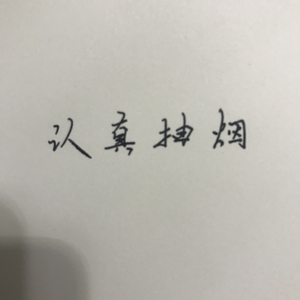 认真抽烟